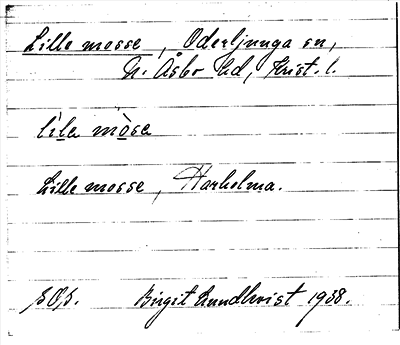 Lille mosse, Oderljunga sn,
N. Åsbo hd, Krist. l.
lìla mòsa
Lille mosse, Harholma.
Birgit Lundkvist 1938.